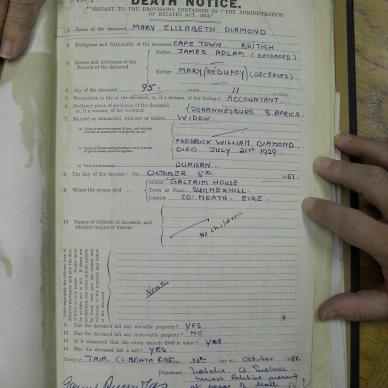 DEATH NOTICE.
PURSUANT TO THE PROVISIONS CONTAINED IN "THE ADMINISTRATION
OF ESTATES ACT, 1913."
1. Name of the deceased MARY ELIZABETH DIAMOND
2. Birthplace and Nationality of the deceased CAPE TOWN BRITISH
3. Names and Addresses of the Parents of the deceased
Father JAMES ADLAM (DECEASED)
Mother MARY DUFFEY (DECEASED)
4. Age of the deceased 95 years 11
5. Occupation in life of the deceased, or if a woman, of her husband ACCOUNTANT.
6. Ordinary place of residence of the deceased, or if a woman, of her husband JOHANNESBURG S. AFRICA.
7. Married or unmarried, widower or widow WIDOW.
FREDERICK WILLIAM DIAMOND
DIED JULY 21st 1929
DURBAN
8. The day of the decease: On OCTOBER 5th 1951.
9. Where the person died
House GALTRIM HOUSE
Town or Place SUMMERHILL
District CO: MEATH. EIRE.
10. Names of children of deceased, and whether majors or minors
No children
None
11. Has the deceased left any movable property? YES
12. Has the deceased left any immovable property? NO
13. Is it estimated that the estate exceeds £300 in value? YES.
14. Has the deceased left a will? YES.
Dated at TRIM, CO: MEATH EIRE, 30th day of October
(Signature)
Nearest Relative present
at